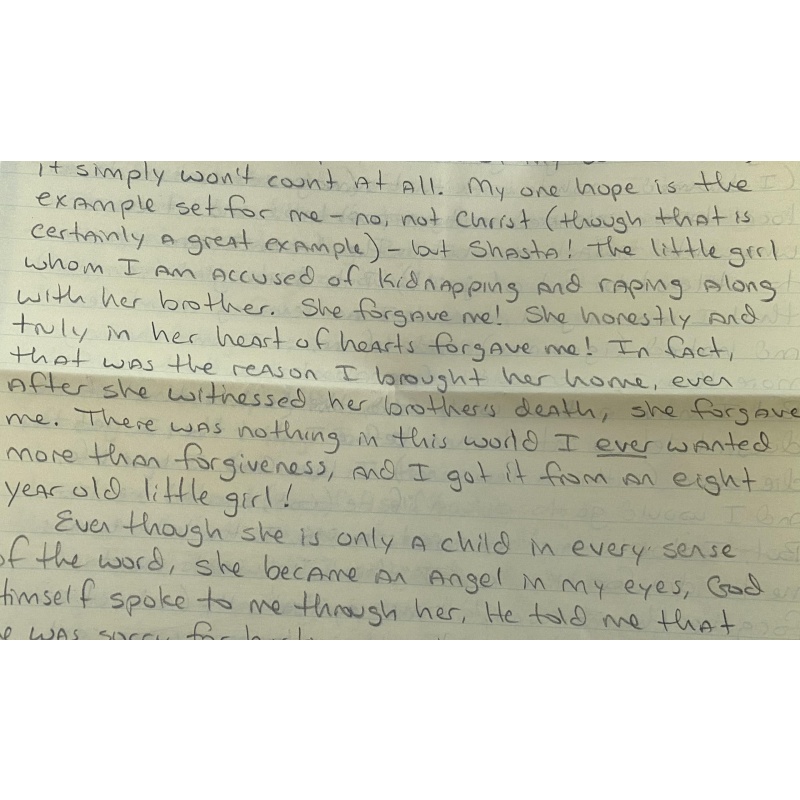 it simply won't count at all. My one hope is the
example set for me - no, not Christ (though that is
certainly a great example) - but Shasta! The little girl
whom I am accused of kidnapping and raping along
with her brother. She forgave me! She honestly and
truly in her heart of hearts forgave me! In fact,
that was the reason I brought her home, even
after she witnessed her brother's death, she forgave
me. There was nothing in this world I ever wanted
more than forgiveness, and I got it from an eight
year old little girl!
Even though she is only a child in every sense
of the word, she became an angel in my eyes, God
Himself spoke to me through her. He told me that
was sorry for